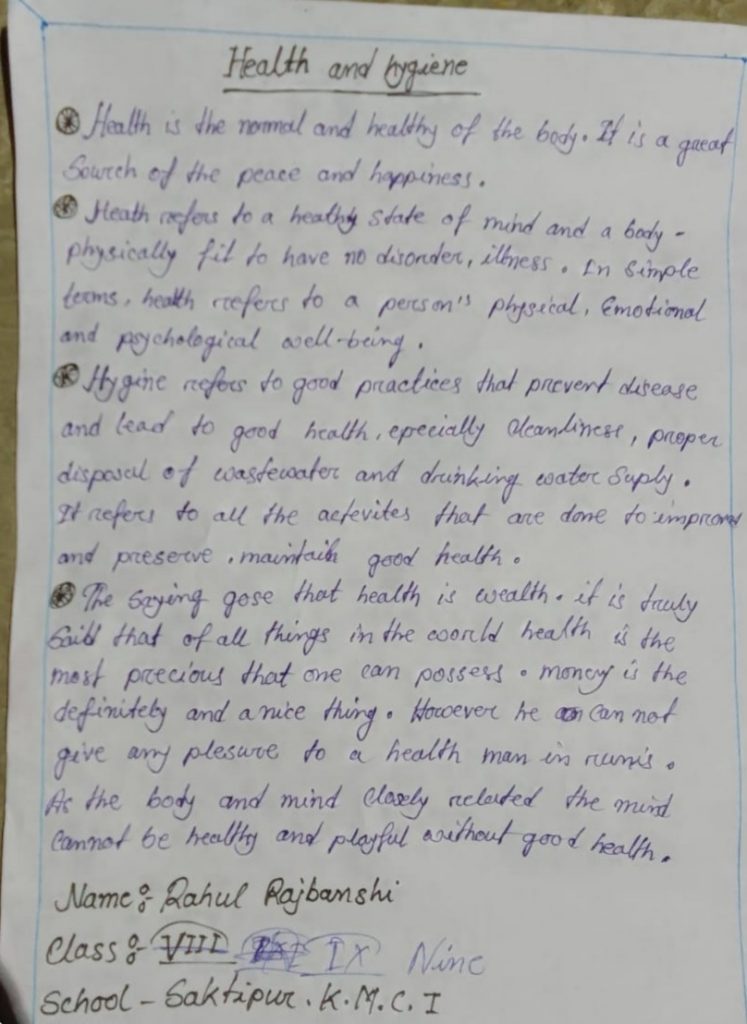 Health and hygiene
Health is the normal and healthy of the body. It is a great
Sourch of the peace and happiness.
Heath refers to a heathy state of mind and a body -
physically fit to have no disorder, illness. In Simple
terms, health refers to a person's physical, Emotional
and psychological well-being.
Hygine refers to good practices that prevent disease
and lead to good health, epecially cleandiness, proper
disposal of wastewater and drinking water Suply.
It refers to all the actevites that are done to improve
and preserve, maintain good health.
The saying gose that health is wealth. it is truly
Said that of all things in the world health is the
most precious that one can possess. money is the
definitely and a nice thing. However he can not
give any plesure to a health man in
As the body and mind Closely related the mind
Cannot be healthy and playful without good health.
Name:- Rahul Rajbanshi
Class:- VIII IX Nine
School - Saktipur. K.M.C.I